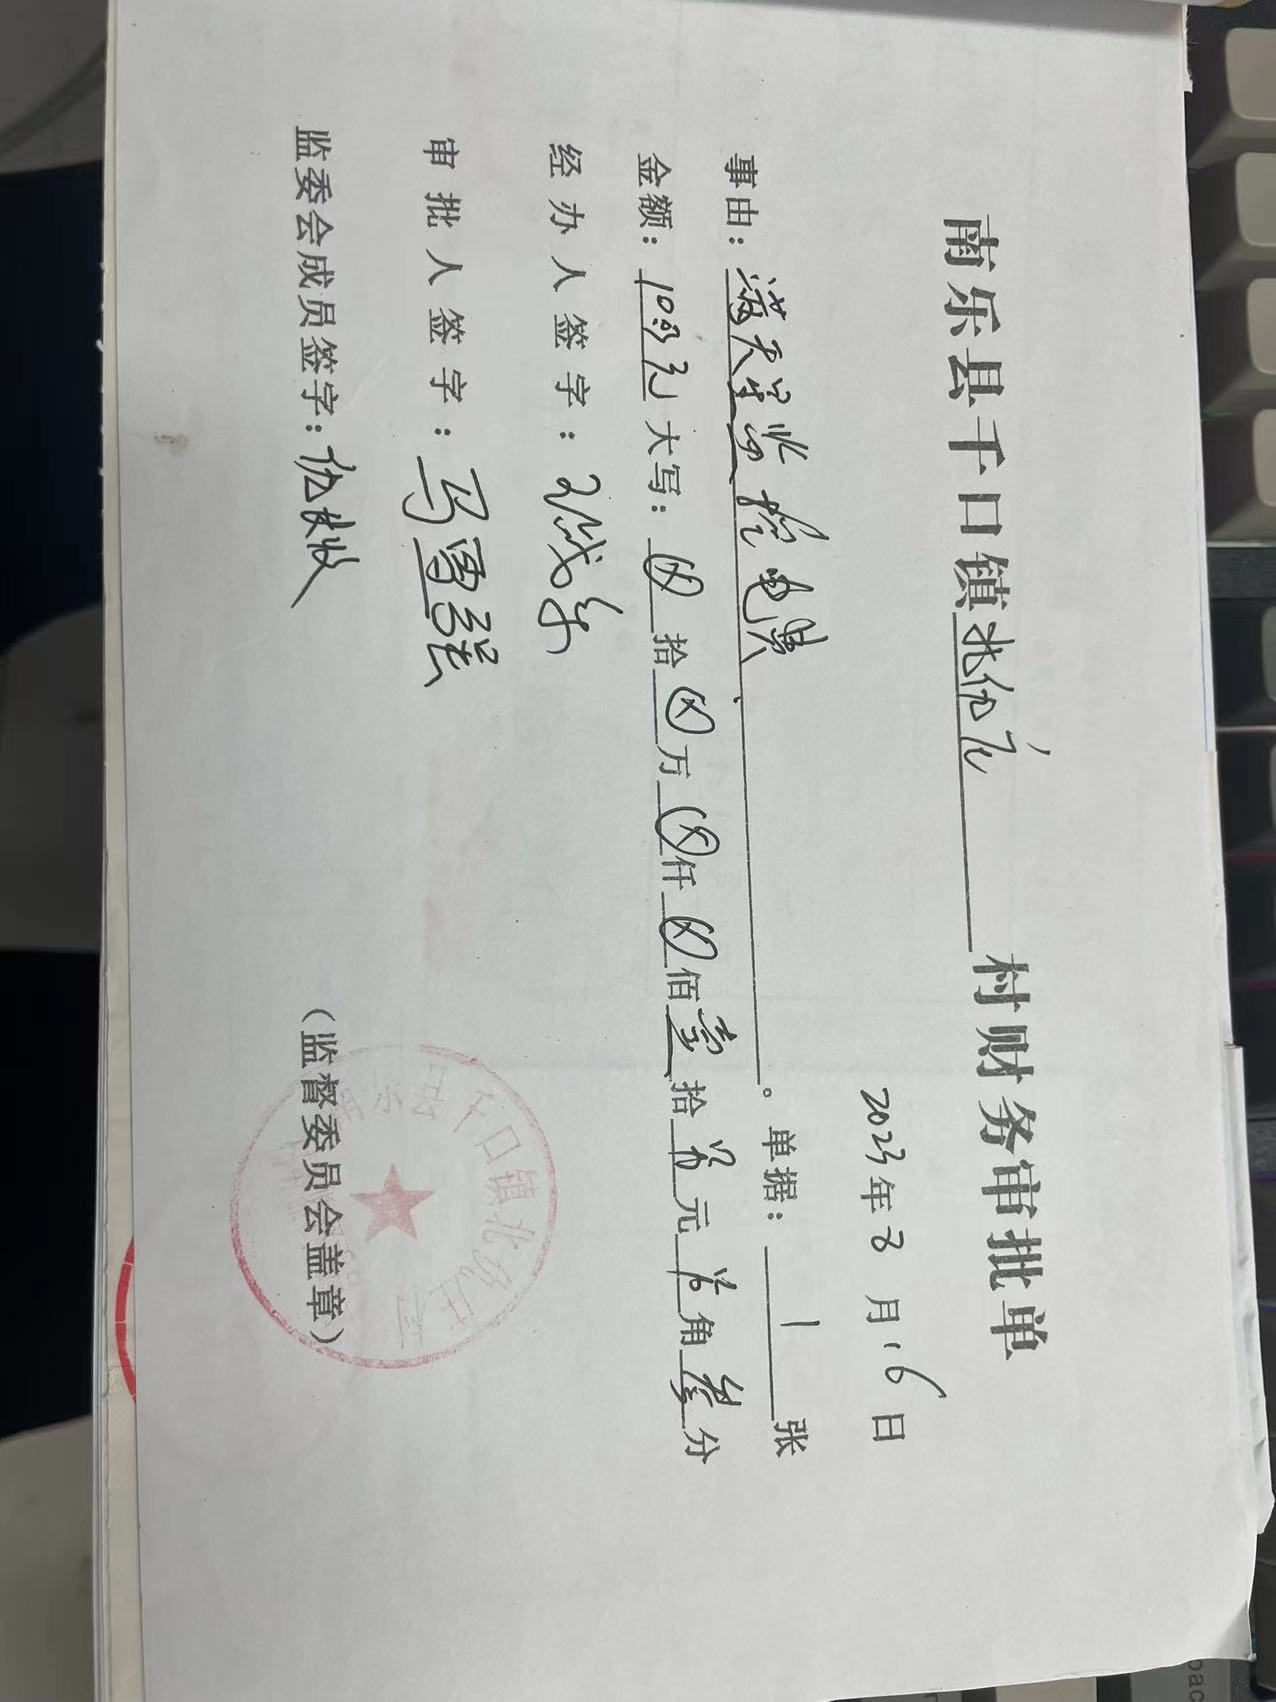 南乐县千口镇北仉庄村财务审批单
2023年8月16日
事由：满天星监控电费。单据：1张
金额：10.03元大写：⊗拾⊗万⊗仟⊗佰壹拾零元零角叁分
经办人签字：
审批人签字：马雪强
监委会成员签字：仉
（监督委员会盖章）
千口镇北仉庄村